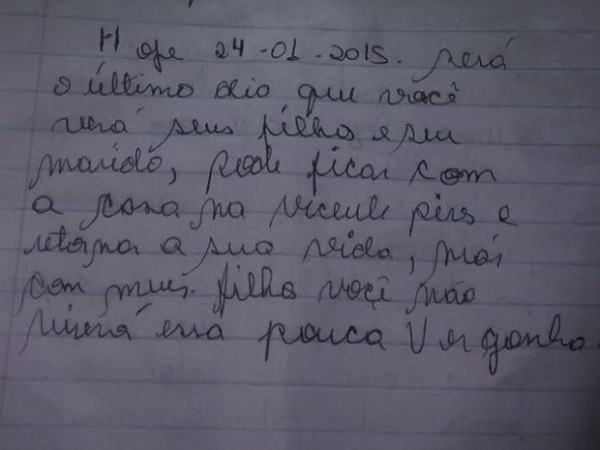 Hoje 24-01-2015. será
o último dia que você
verá seus filho e seu
marido, pode ficar com
a casa na vicente pires e
retorna a sua vida, mas
com meus filho você não
viverá essa pouca Vergonha